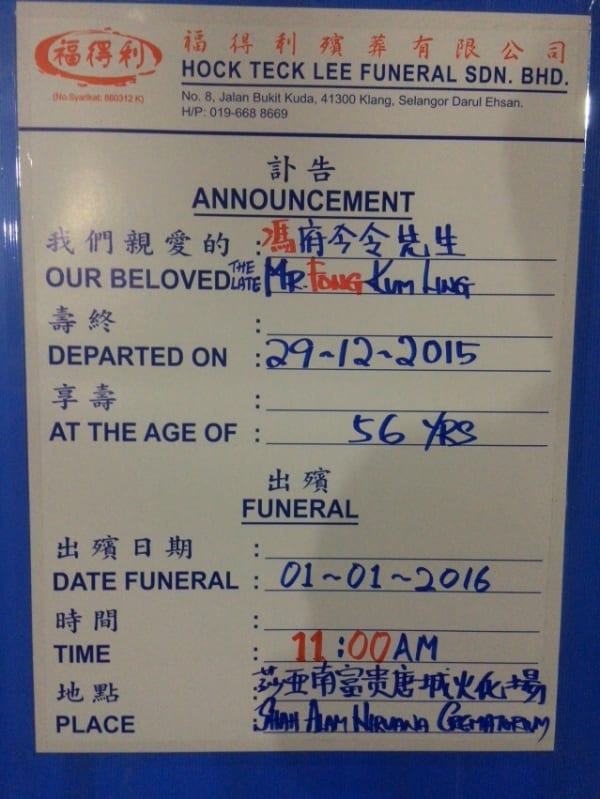 福得利
(No.Syarikat: 860312 K)
福得利殯葬有限公司
HOCK TECK LEE FUNERAL SDN. BHD.
No. 8, Jalan Bukit Kuda, 41300 Klang, Selangor Darul Ehsan.
H/P: 019-668 8669
訃告
ANNOUNCEMENT
我們親愛的 : 馮府今令先生
OUR BELOVED THE LATE MR. FONG KUM LING
壽終 :
DEPARTED ON : 29-12-2015
享壽 :
AT THE AGE OF : 56 YRS
出殯
FUNERAL
出殯日期 :
DATE FUNERAL : 01-01-2016
時間 :
TIME : 11:00AM
地點 : 莎亚南富贵唐城火化場
PLACE : SHAH ALAM NIRVANA CREMATORIUM